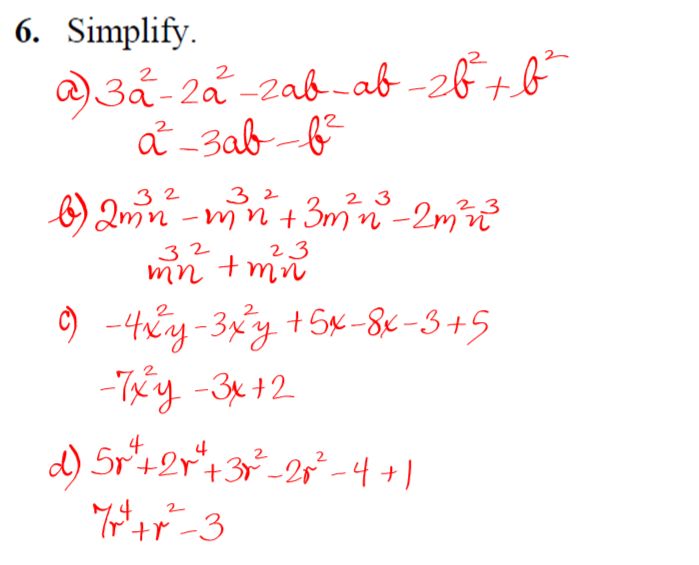 6. Simplify.
a) 3a² - 2a² - 2ab - ab - 2b² + b²
a² - 3ab - b²
b) 2m³n² - m³n² + 3m²n³ - 2m²n³
m³n² + m²n³
c) -4x²y - 3x²y + 5x - 8x - 3 + 5
-7x²y - 3x + 2
d) 5r⁴ + 2r⁴ + 3r² - 2r² - 4 + 1
7r⁴ + r² - 3